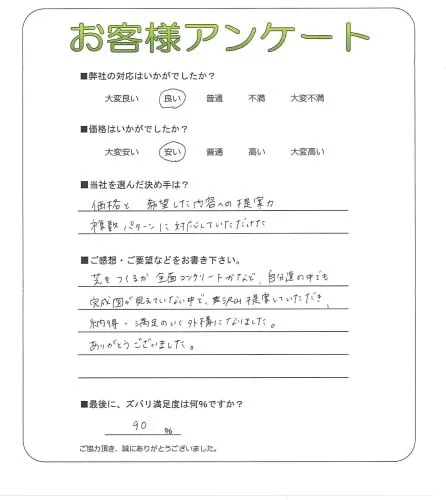 お客様アンケート
■弊社の対応はいかがでしたか?
大変良い 良い 普通 不満 大変不満
■価格はいかがでしたか?
大変安い 安い 普通 高い 大変高い
■当社を選んだ決め手は?
価格と 希望した内容への提案力
複数パターンに対応していただけた
■ご感想・ご要望などをお書き下さい。
芝をつくるか全面コンクリートかなど、自分達の中でも
完成図が見えていない中で、沢山提案していただき、
納得・満足のいく外構になりました。
ありがとうございました。
■最後に、ズバリ満足度は何%ですか?
90 %
ご協力頂き、誠にありがとうございました。